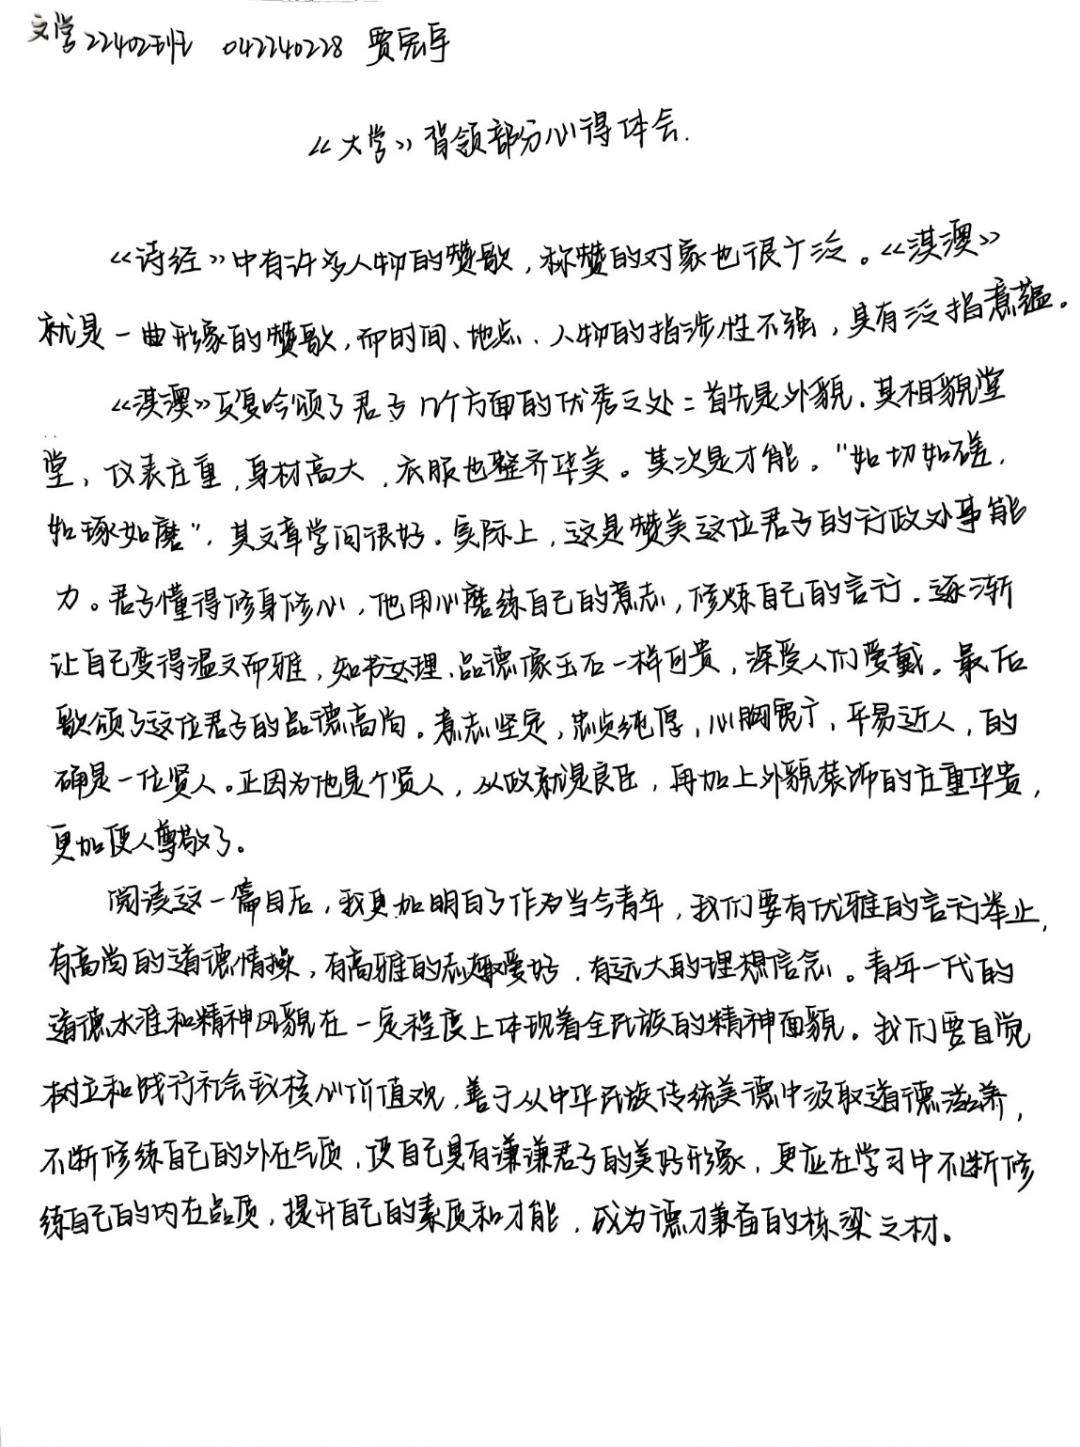 文学22402班 042240228 贾宏宇
《大学》背领部分心得体会.
《诗经》中有许多人物的赞歌,称赞的对象也很广泛。《淇澳》
就是一曲形象的赞歌,而时间、地点、人物的指涉性不强,具有泛指意蕴。
《淇澳》反复吟颂了君子几个方面的优秀之处:首先是外貌,其相貌堂
堂,仪表庄重,身材高大,衣服也整齐华美。其次是才能。"如切如磋,
如琢如磨",其文章学问很好。实际上,这是赞美这位君子的行政处事能
力。君子懂得修身修心,他用心磨练自己的意志,修炼自己的言行,逐渐
让自己变得温文而雅,知书达理,品德像玉石一样可贵,深受人们爱戴。最后
歌颂了这位君子的品德高尚。意志坚定,忠贞纯厚,心胸宽广,平易近人,的
确是一位贤人。正因为他是个贤人,从政就是良臣,再加上外貌装饰的庄重华贵,
更加便人尊敬了。
阅读这一篇目后,我更加明白了作为当今青年,我们要有优雅的言行举止,
有高尚的道德情操,有高雅的志趣爱好,有远大的理想信念。青年一代的
道德水准和精神风貌在一定程度上体现着全民族的精神面貌。我们要自觉
树立和践行社会主义核心价值观,善于从中华民族传统美德中汲取道德滋养,
不断修练自己的外在气质,使自己具有谦谦君子的美好形象,更应在学习中不断修
练自己的内在品质,提升自己的素质和才能,成为德才兼备的栋梁之材。